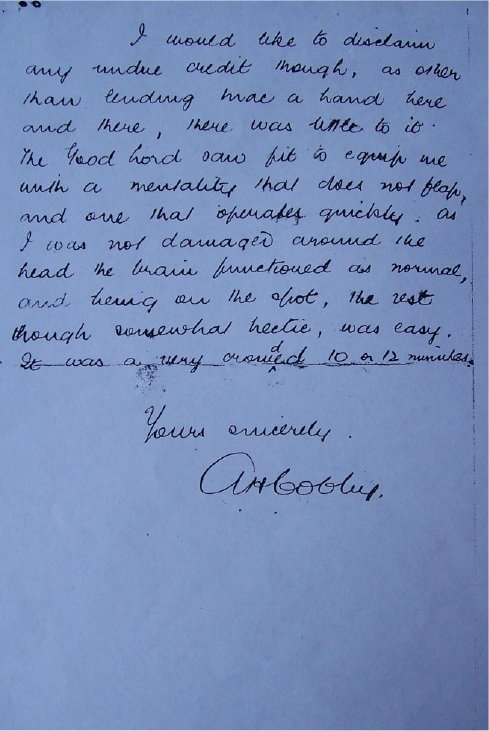 I would like to disclaim
any undue credit though, as other
than lending Mac a hand here
and there, there was little to it.
The Good Lord saw fit to equip me
with a mentality that does not flap,
and one that operates quickly. as
I was not damaged around the
head the brain functioned as normal,
and being on the spot, the rest
though somewhat hectic, was easy.
It was a very crowded 10 or 12 minutes.
Yours sincerely.